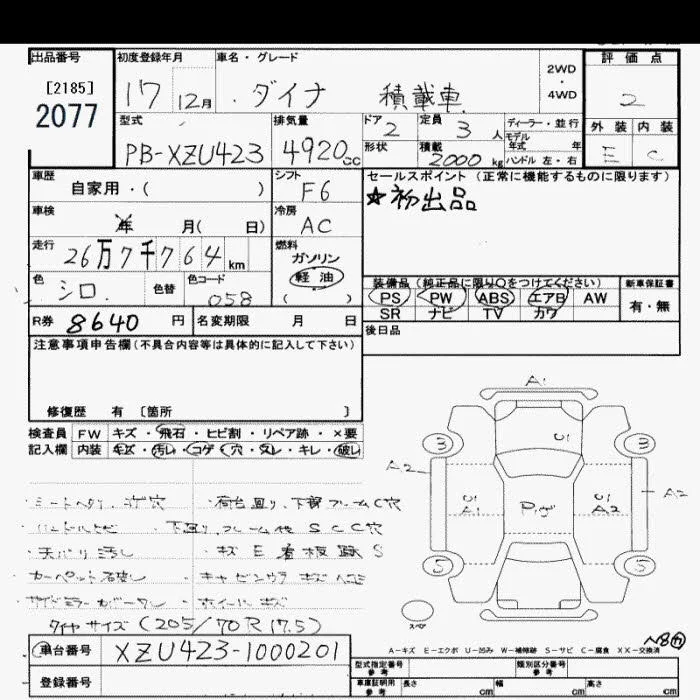 出品番号
[2185]
2077
初度登録年月
17 12月
車名・グレード
ダイナ 積載車
2WD
・
4WD
評価点
2
型式
PB-XZU423
排気量
4920cc
ドア
2
定員
3人
ディーラー・並行
モデル
年式 年
形状
積載
2000kg
ハンドル 左・右
外装 内装
E C
車歴
自家用・( )
シフト
F6
セールスポイント(正常に機能するものに限ります)
☆初出品
車検
年 月( 日)
冷房
AC
走行
26万7千764km
燃料
ガソリン
軽油
( )
色
シロ
色替
色コード
058
装備品(純正品に限り○をつけてください)
PS PW ABS エアB AW
SR ナビ TV カワ
新車保証書
有・無
R券 8640円
名変期限 月 日
後日品
注意事項申告欄(不具合内容等は具体的に記入して下さい)
修復歴 有 〔箇所 〕
検査員
記入欄
FW キズ・飛石・ヒビ割・リペア跡・×要
内装 キズ・汚レ・コゲ・穴・スレ・キレ・破レ
・シートヘタリ、コゲ穴
・荷台廻り、下廻フレームC穴
・ハンドルトビ
・下廻り、フレーム他SCC穴
・天バリ汚し
・キズE看板跡S
・カーペット破レ
・ホイールキズ
タイヤサイズ(205/70R17.5)
A1
U1
3
3
A2
U1
A1
U1
A2
A2
5
5
スペア
A-キズ E-エクボ U-凹み W-補修跡 S-サビ C-腐食 XX-交換済
車台番号 XZU423-1000201
登録番号
型式指定番号
参考
類別区分番号
参考
車庫証明用
参考
長さ cm 幅 cm 高さ cm